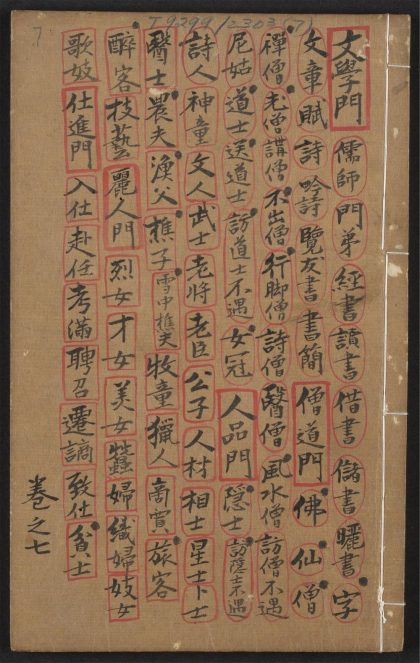 T 9299/2303(7)
7
文學門 儒師 門弟 經書 讀書 借書 儲書 曬書 字
文章 賦 詩 吟詩 覽友書 書簡 僧道門 佛 仙 僧
禪僧 老僧 講僧 不出僧 行脚僧 詩僧 醫僧 風水僧 訪僧不遇
尼姑 道士 送道士 訪道士不遇 女冠 人品門 隱士 訪隱士不遇
詩人 神童 文人 武士 老將 老臣 公子 人材 相士 星士 卜士
醫士 農夫 漁父 樵子 雪中樵夫 牧童 獵人 商賈 旅客
醉客 技藝 麗人門 烈女 才女 美女 蠶婦 織婦 妓女
歌妓 仕進門 入仕 赴任 考滿 聘召 遷謫 致仕 貧士
卷之七